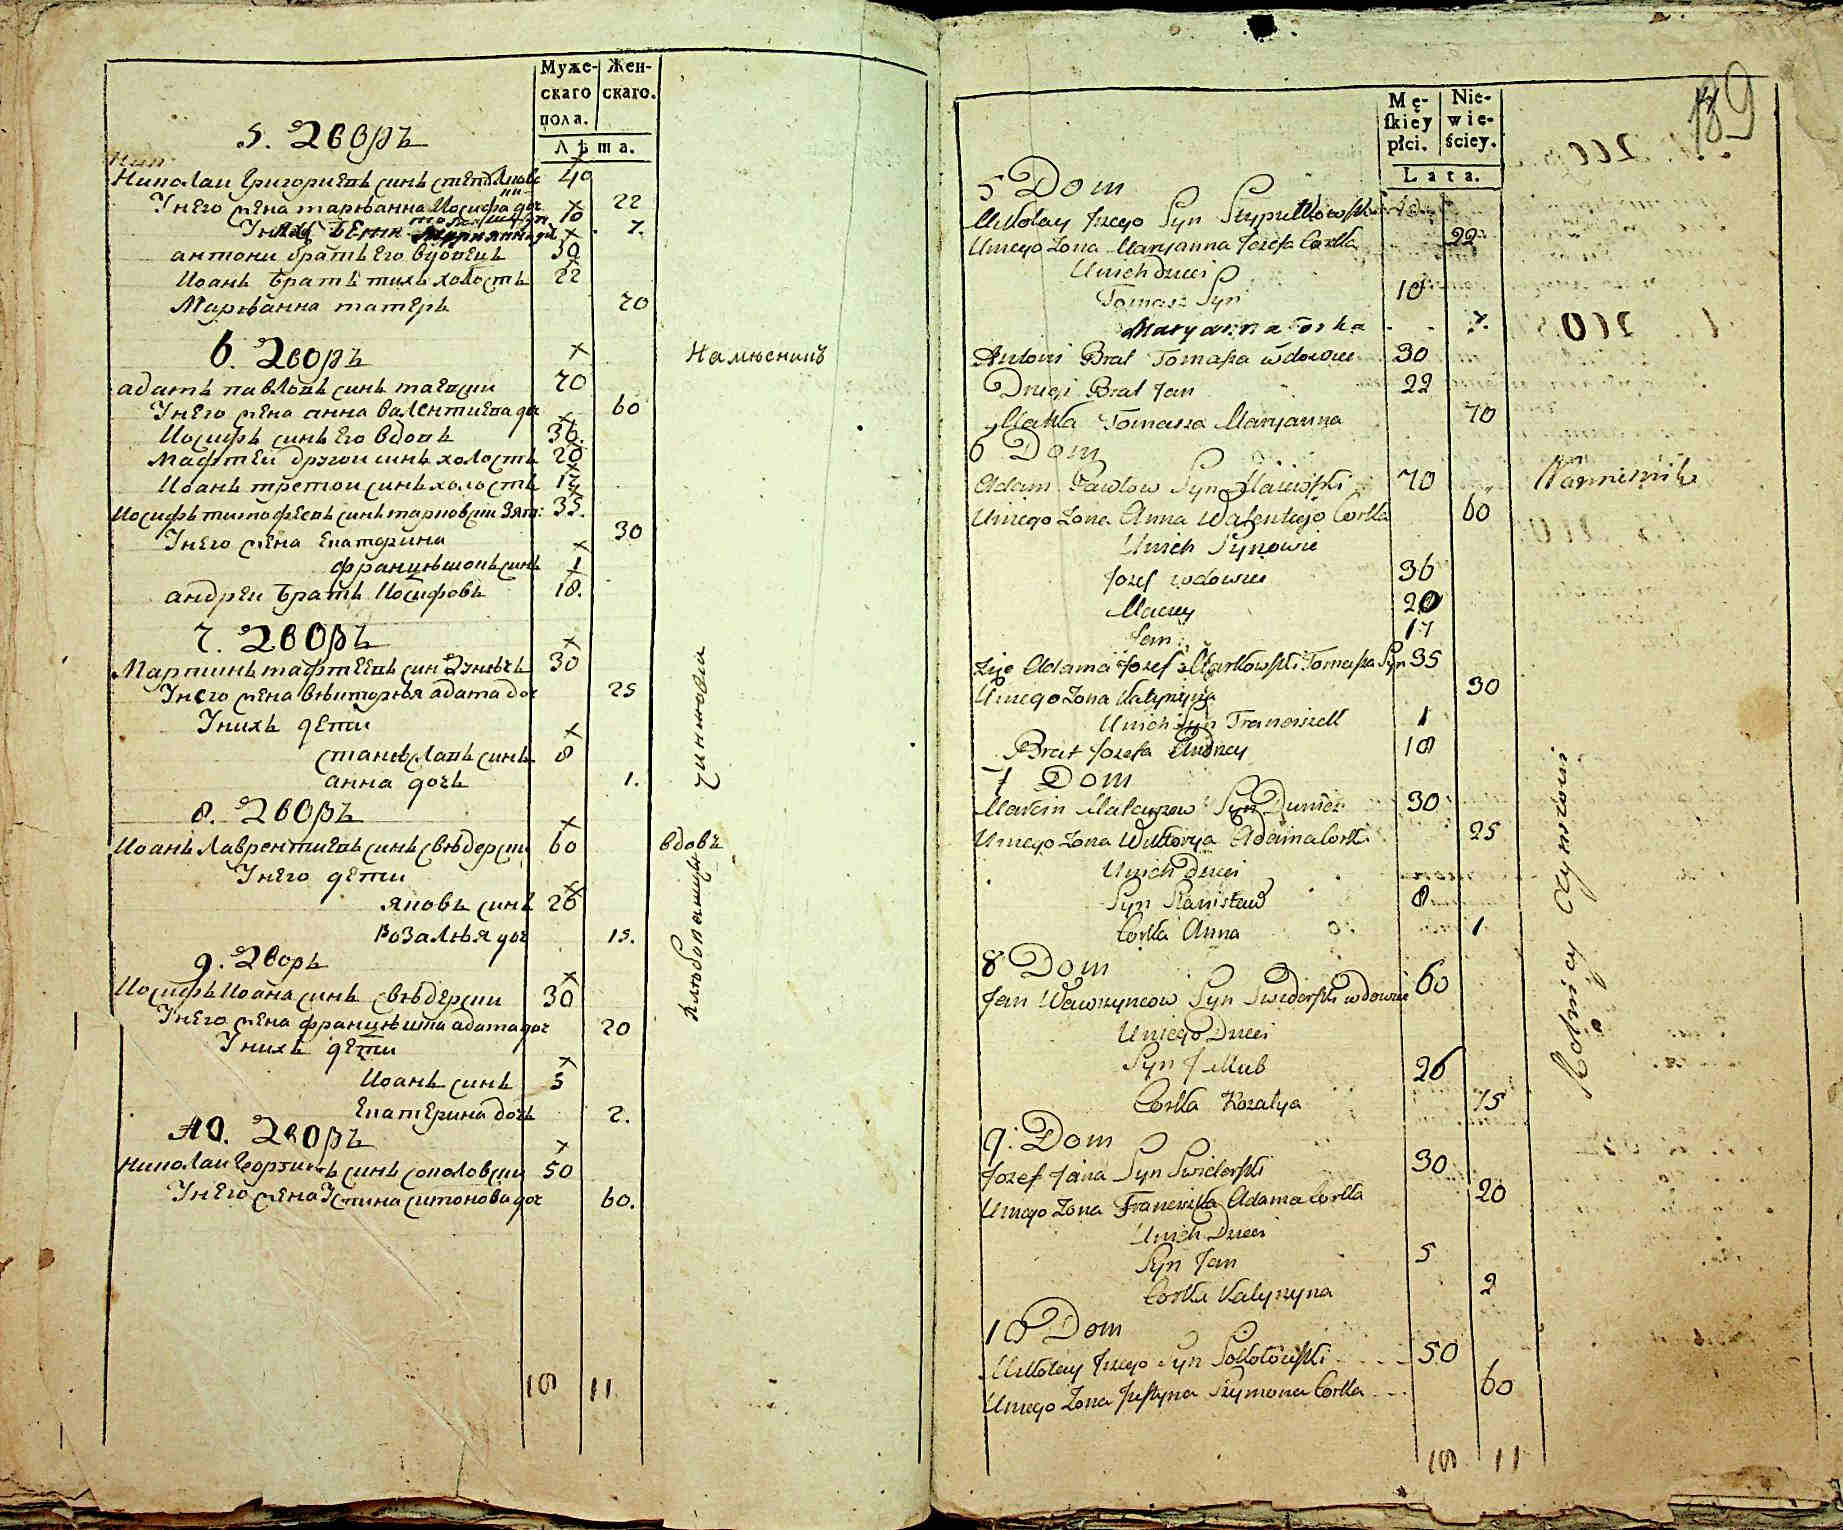 Муже- Жен-
скаго скаго.
пола.
Лѣта.
5. Дворъ
Николаи Григориевъ синъ 40
Унего жена марьянна Иосифа доч 22
10
7.
антони братъ его вдовецъ 30
Иоанъ братъ тихъ холостъ 22
Марьянна матеръ 70
6. Дворъ
Намѣсникъ
адамъ павловъ синъ 70
Унего жена анна валентиева доч 60
Иосифъ синъ его вдовъ 36.
Мафтеи другои синъ холостъ 20
Иоанъ третои синъ холостъ 17
Иосифъ тимофеевъ синъ марковски зят: 35.
Унего жена Екатерина 30
францѣшокъ синъ 1
андреи братъ Иосифовъ 18.
7. Дворъ
Мартинъ мафтеевъ син 30
Унего жена вѣкторья адама доч 25
Унихъ дети
станѣславъ синъ 8
анна дочъ 1.
8. Дворъ
Иоанъ Лаврентиевъ синъ свѣдерски 60 вдовъ
Унего дети
яковъ синъ 26
Розалья доч 15.
9. Дворъ
Иосифъ Иоана синъ свѣдерски 30
Унего жена францѣшка адама доч 20
Унихъ дети
Иоанъ синъ 5
Екатерина дочъ 2.
10. Дворъ
Николаи синъ соколовски 50
Унего жена Устина симонова доч 60.
18 11
хлѣбопашцы чиншови
189
Mę- Nie-
ſkiey wie-
płci. ściey.
Lata.
5 Dom
Mikołay Jrzego Syn
Uniego Zona Maryanna Jozefa Corka 22
Unich Dzieci
Tomasz Syn 10
Maryanna Corka 7.
Antoni Brat Tomaſza wdowiec 30
Drugi Brat Jan 22
Matka Tomasza Maryanna 70
6 Dom
Adam Pawłow Syn 70
Uniego Zona Anna Walentiego Corka 60
Unich Synowie
Jozef wdowiec 36
Maciey 20
Jan 17
Zięc Adama Jozef Markowſki Tomaſza Syn 35
Uniego Zona Katyrzyna 30
Unich Syn Franciszek 1
Brat Jozefa Andrzey 18
7 Dom
Marcin Mateuszow Syn 30
Uniego Zona Wiktorya Adama Corka 25
Unich Dzieci
Syn Stanisław 8
Corka Anna 1
8 Dom
Jan Wawrzyncow Syn Swiderſki wdowiec 60
Uniego Dzieci
Syn Jakub 26
Corka Rozalya 15
9. Dom
Jozef Jana Syn Swiderſki 30
Uniego Zona Franciszka Adama Corka 20
Unich Dzieci
Syn Jan 5
Corka Katyrzyna 2
10 Dom
Mikołay Jrzego Syn Sokołowſki 50
Uniego Zona Juſtyna Szymona Corka 60
18 11
Namiesnik
Rolnicy Czynszowi